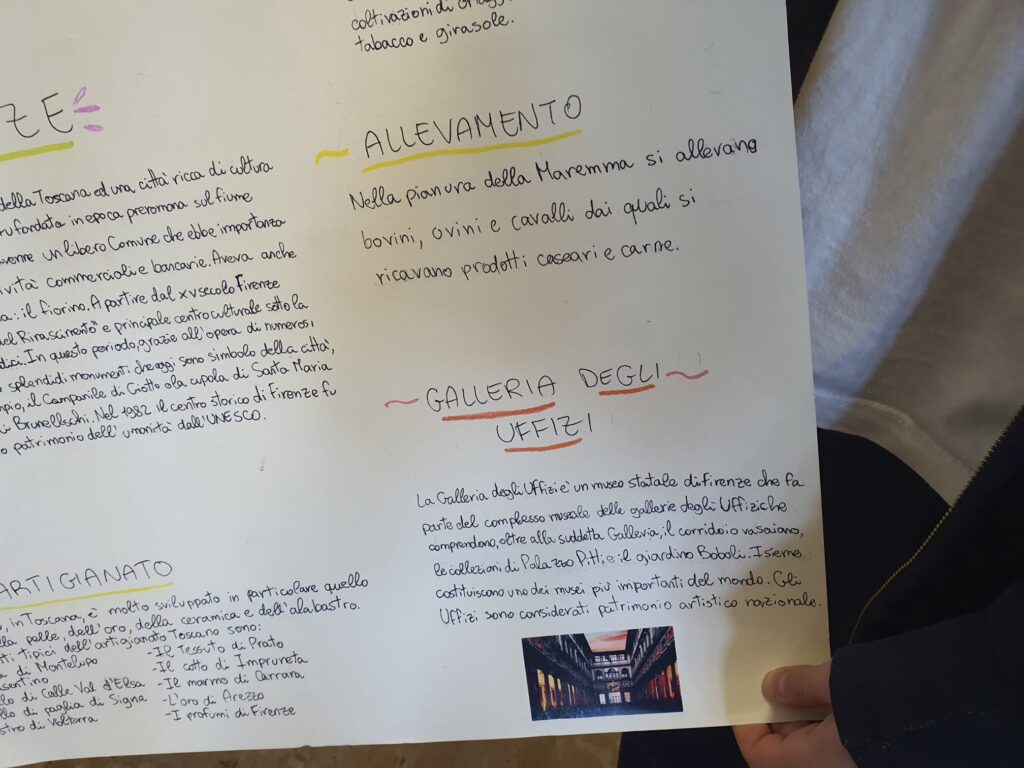 coltivazioni di
tabacco e girasole.
ZE
della Toscana ed una città ricca di cultura
fondata in epoca preromana sul fiume
un libero Comune che ebbe importanza
commerciali e bancarie. Aveva anche
: il fiorino. A partire dal xv secolo Firenze
Rinascimento" e principale centro culturale sotto la
In questo periodo, grazie all'opera di numerosi
splendidi monumenti che oggi sono simbolo della città,
il Campanile di Giotto o la cupola di Santa Maria
Brunelleschi. Nel 1982 il centro storico di Firenze fu
patrimonio dell'umanità dall'UNESCO.
~ ALLEVAMENTO
Nella pianura della Maremma si allevano
bovini, ovini e cavalli dai quali si
ricavano prodotti caseari e carne.
~ GALLERIA DEGLI ~
UFFIZI
La Galleria degli Uffizi è un museo statale di Firenze che fa
parte del complesso museale delle gallerie degli Uffizi che
comprendono, oltre alla suddetta Galleria, il corridoio vasaiano,
le collezioni di Palazzo Pitti, e il giardino Boboli. Insieme
costituiscono uno dei musei più importanti del mondo. Gli
Uffizi sono considerati patrimonio artistico nazionale.
ARTIGIANATO
, in Toscana, è molto sviluppato in particolare quello
pelle, dell'oro, della ceramica e dell'alabastro.
tipici dell'artigianato Toscano sono:
di Montelupo
di Colle Val d'Elsa
di paglia di Signa
di Volterra
-Il Tessuto di Prato
-Il cotto di Impruneta
-Il marmo di Carrara
-L'oro di Arezzo
-I profumi di Firenze